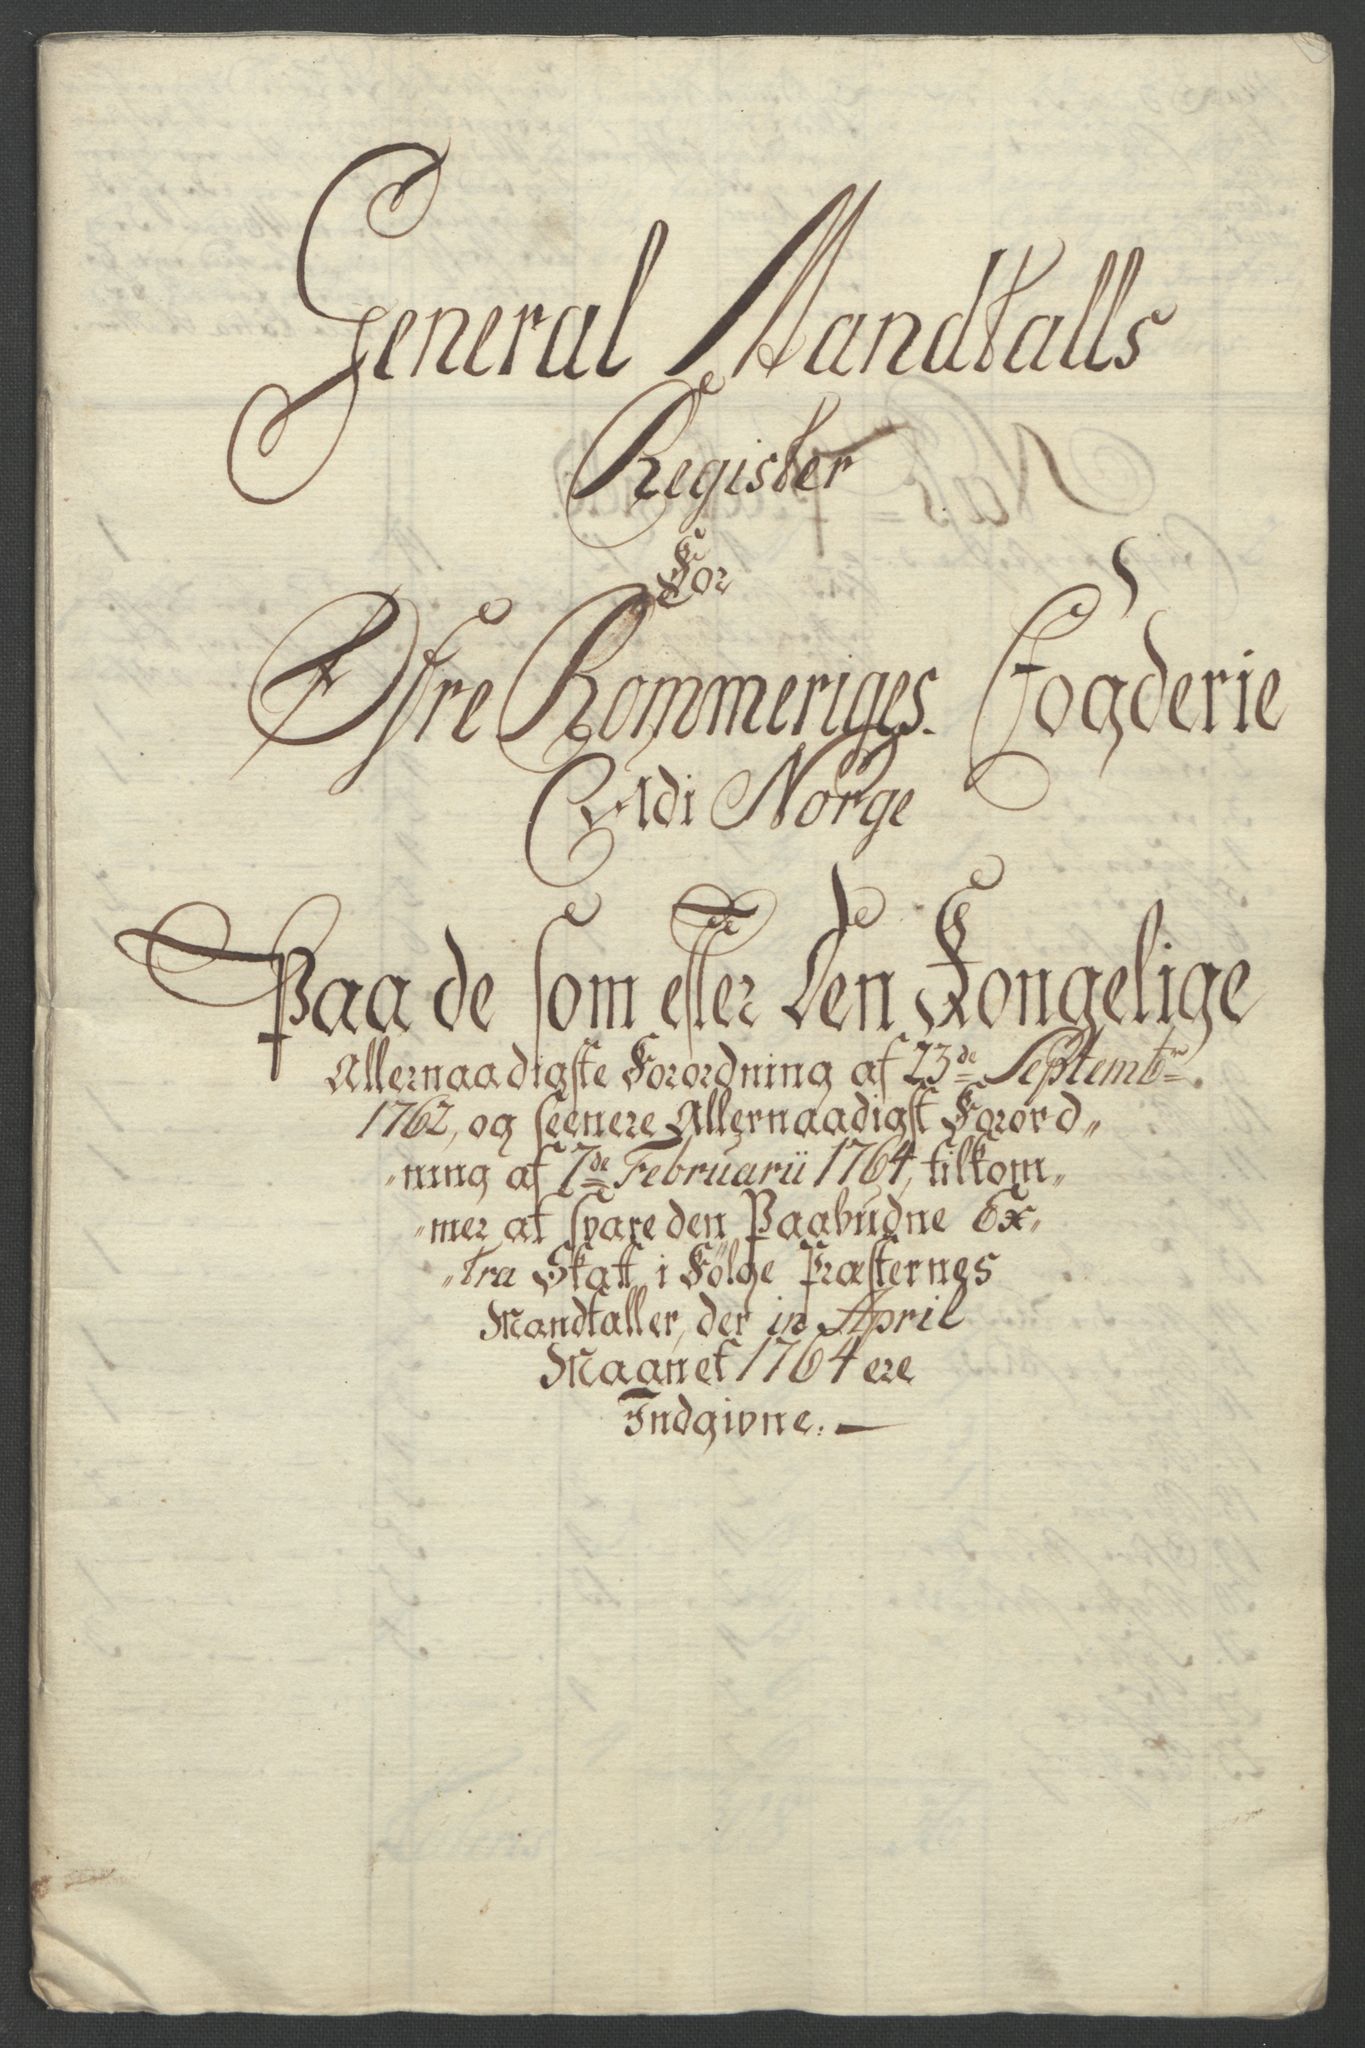 General Mandtalls
Register
For
Øfre Rommeriges Fogderie
Udi Norge
Paa de som efter den Kongelige
Allernaadigste Forordning af 23de Septembr.
1762, og seenere Allernaadigst Forord„
„ning af 7de Februarii 1764, tilkom„
„mer at svare den Paabudne Ex„
„tra Skatt i Følge Præsternes
Mandtaller, der in April
Maanet 1764 ere
Indgivne. —